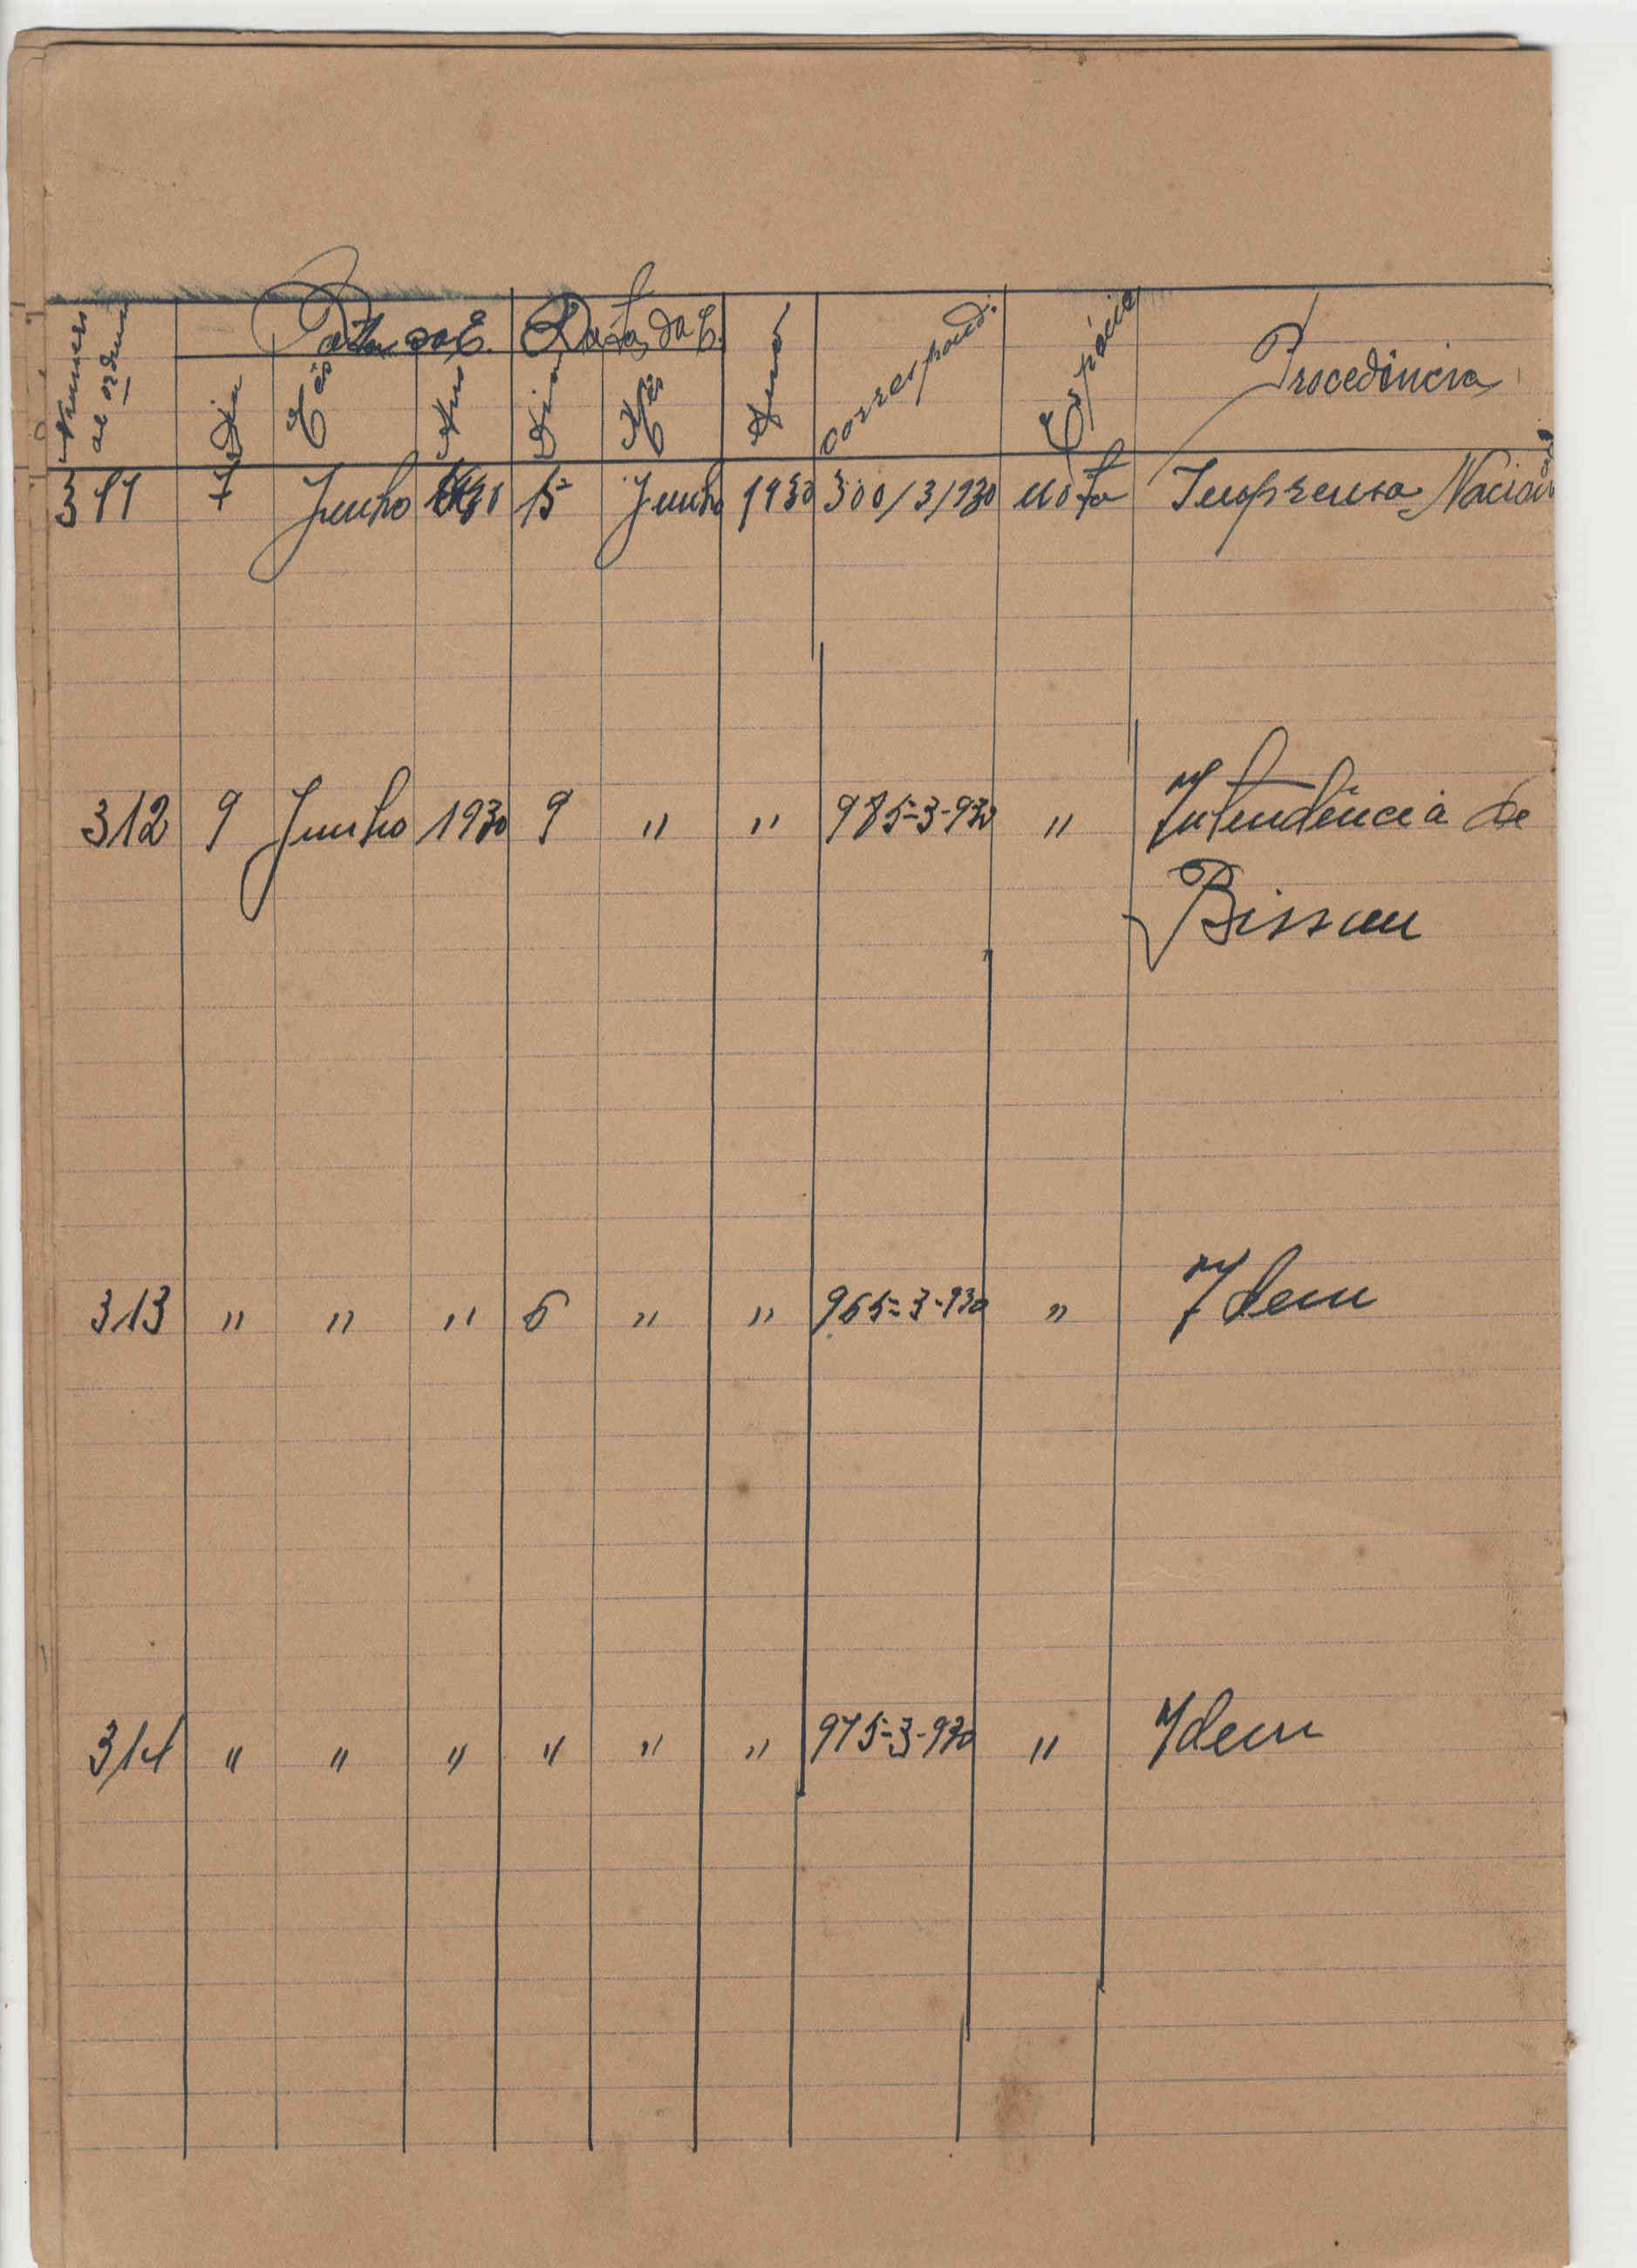 Número de ordem Data da E. Data da C. Ano correspond: Espécie Procedência
Dia Mês Ano Dia Mês
311 7 Junho 1930 5 Junho 1930 300/3/930 nota Imprensa Nacion
312 9 Junho 1930 9 " " 985-3-930 " Intendência de
Bissau
313 " " " 6 " " 965-3-930 " Idem
314 " " " " " " 975-3-930 " Idem